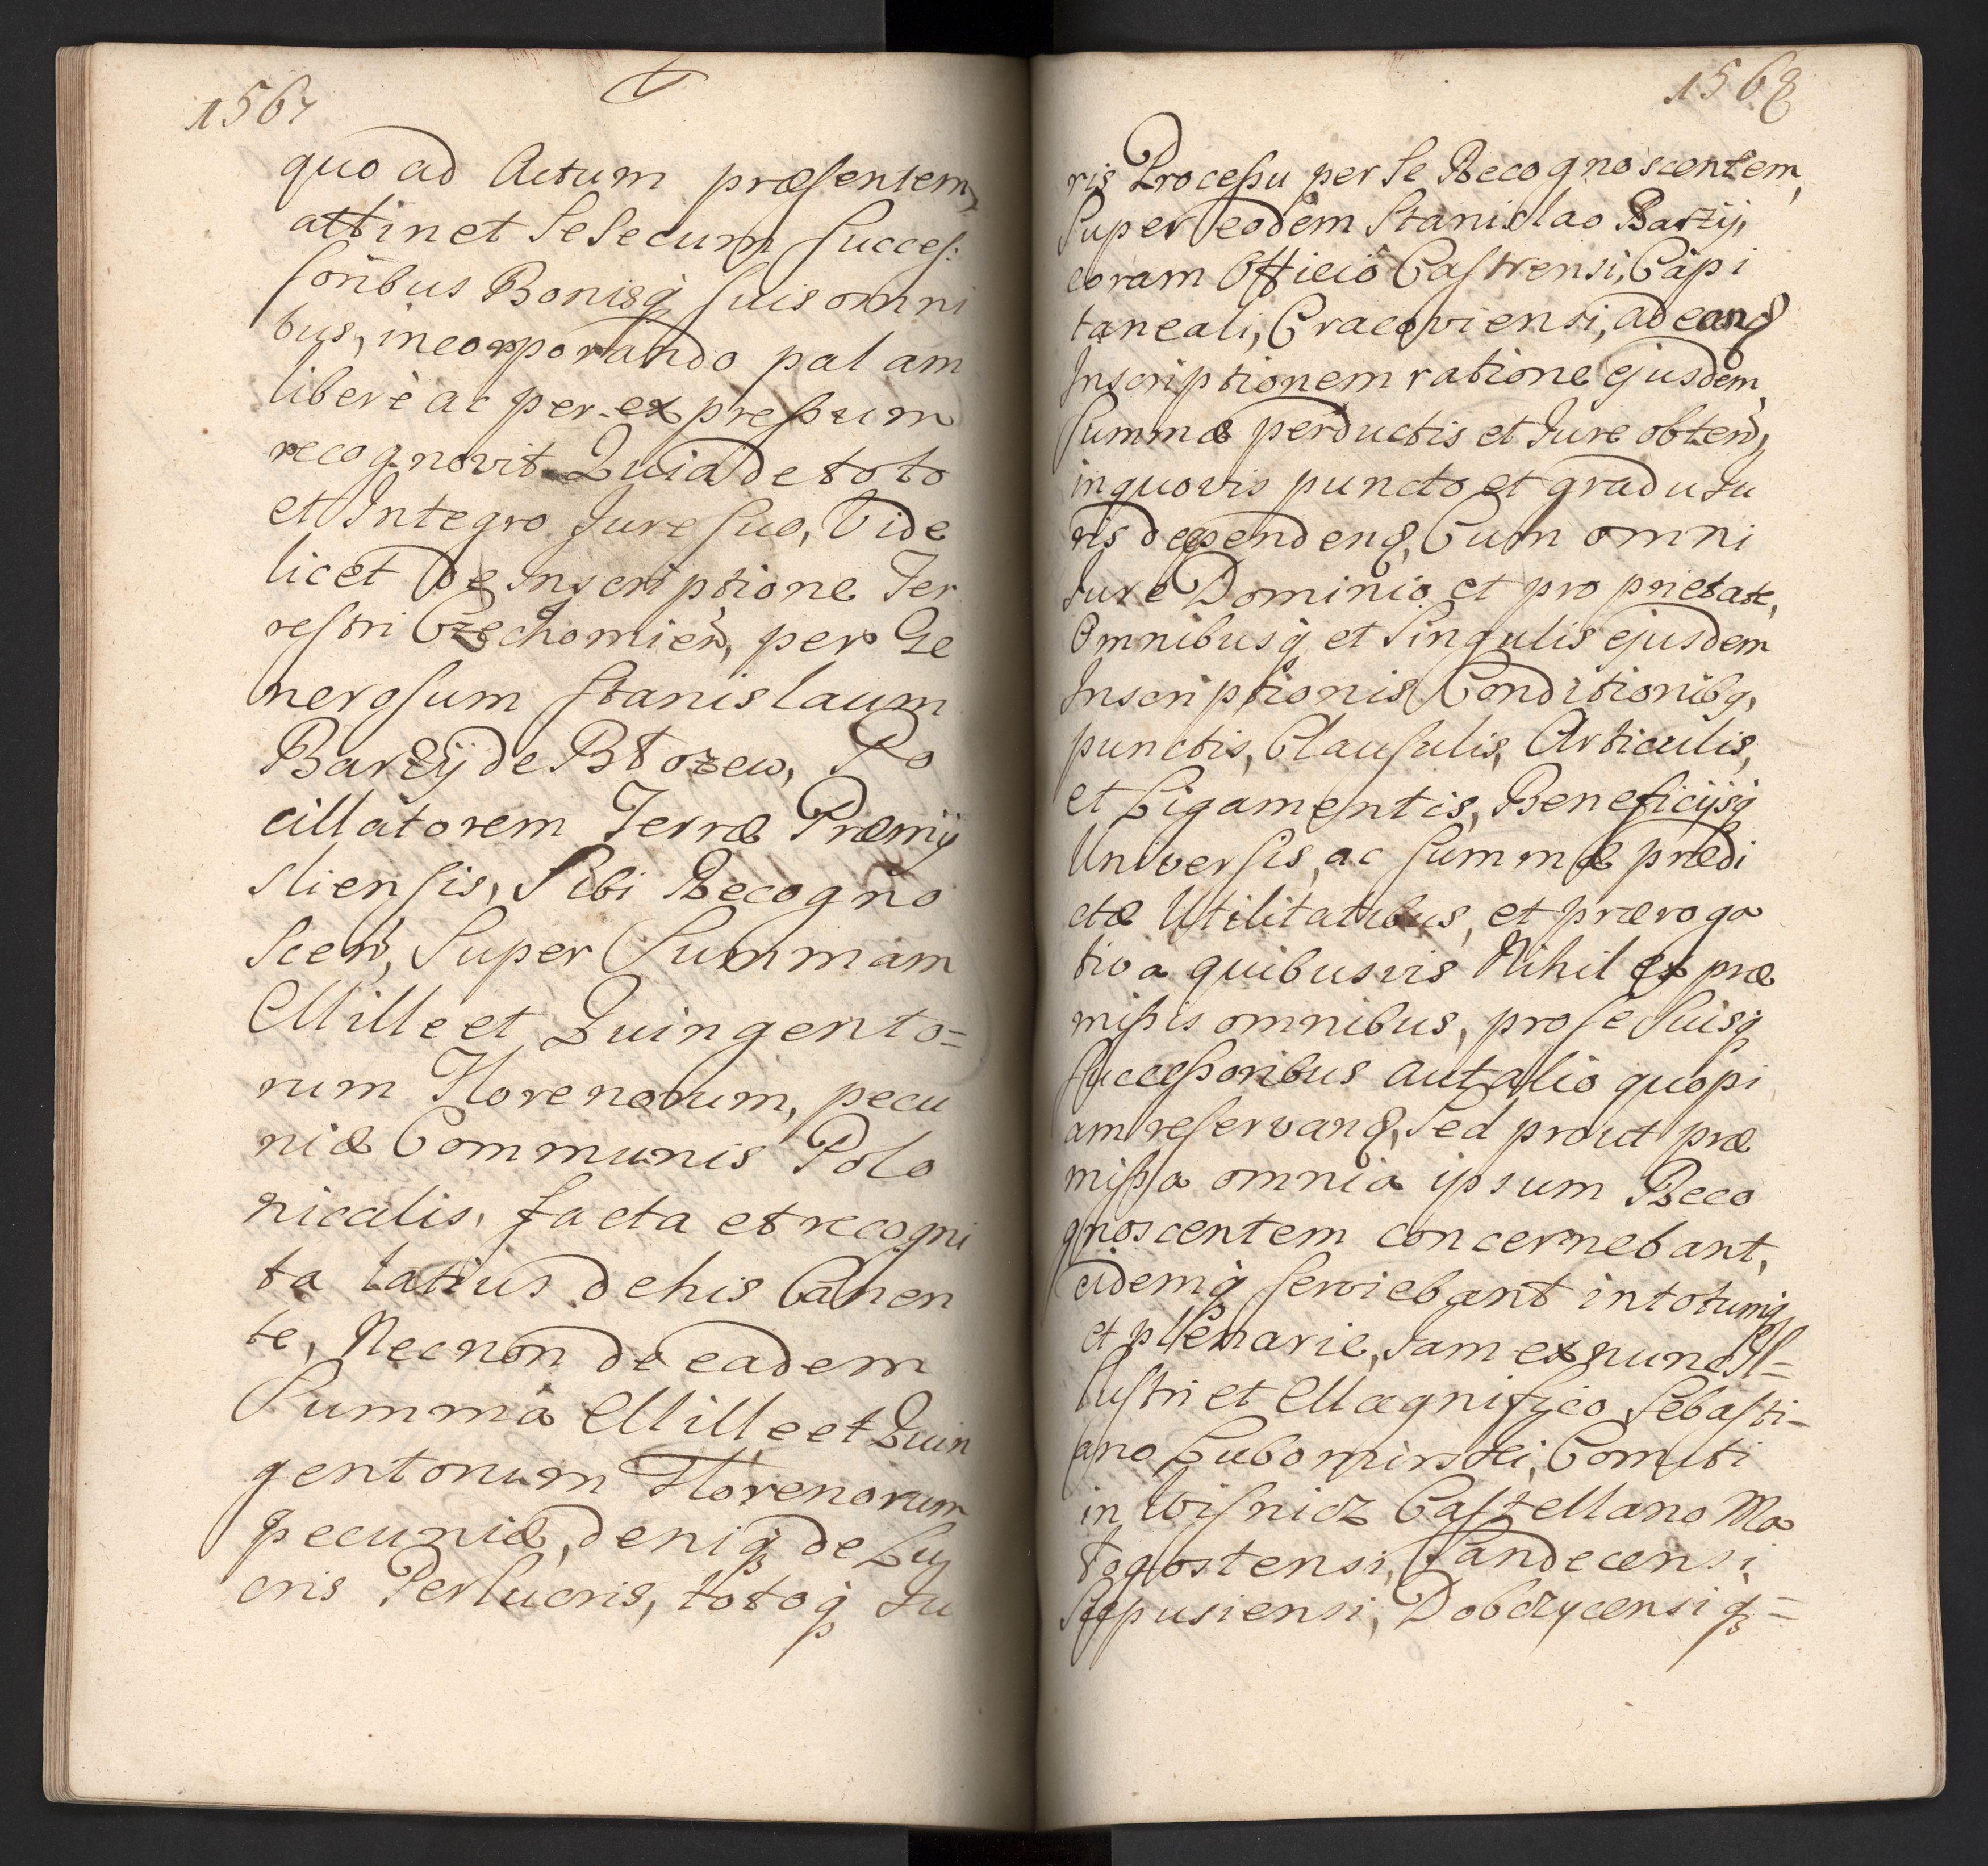 1567
quo ad Actum præsentem,
attinet Se Se cum Succes:
soribus Bonisq suis omni
bus, incorporando palam
liberè ac per expressum
recognovit Quia de toto
et Integro Jure suo, Vide
licet de Inscriptione Ter
restri Czchomień, per Ge
nerosum Stanislaum
Barzÿ de Btozew, Po
cillatorem Terræ Præmÿ
sliensis, Sibi Recogno
scen, Super Summam
Mille et Quingento=
rum Florenorum, pecu
niæ Communis Polo
nicalis, facta et recogni
ta latius de his Canen
te, Necnon de eadem
Summa Mille et Quin
gentorum Florenorum
pecuniæ, deniq de Lu
cris Perlucris, totoq Ju
1568
ris Processu per Se Recognoscentem,
Super eodem Stanislao Barzÿ,
coram Officio Castrensi, Capi
taneali, Cracoviensi, ad eand
Inscriptionem ratione ejusdem
Summæ perductis et Jure obten,
in quovis puncto et gradu Ju
ris dependend, Cum omni
Jure Dominio et proprietate,
Omnibusq et Singulis ejusdem
Inscriptionis Conditionibq,
punctis, Clausulis, Articulis,
et Ligamentis, Beneficÿsq
Universis, ac summæ prædi
ctæ Utilitatibus, et præroga
tiva quibusvis Nihil ex præ
missis omnibus, pro se Suisq
Successoribus aut alio quopi
am reservand, Sed prout præ
missa omnia ipsum Reco
gnoscentem concernebant,
eidemq serviebant in totumq
et plenarie, Jam ex nunc Il=
lustri et Magnifico Sebasti=
ano Lubomirski, Comiti
in Wisnicz Castellano Ma
togostensi, Sandecensi,
Scepusiensi, Dobczycensiq=